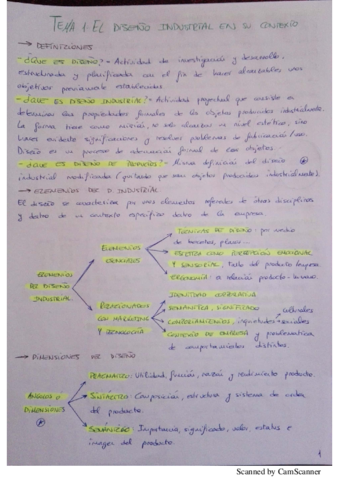 TEMA 1: EL DISEÑO INDUSTRIAL EN SU CONTEXTO
→ DEFINICIONES
- ¿QUÉ ES DISEÑO? - Actividad de investigación y desarrollo,
estructurada y planificada con el fin de hacer alcanzables unos
objetivos previamente establecidos.
- ¿QUÉ ES DISEÑO INDUSTRIAL? - Actividad proyectual que consiste en
determinar las propiedades formales de los objetos producidos industrialmente.
La forma tiene como misión, no sólo alcanzar un nivel estético, sino
hacer evidente significaciones y resolver problemas de fabricación/uso.
Diseño es un proceso de adecuación formal de esos objetos.
- ¿QUÉ ES DISEÑO DE PRODUCTO? - Misma definición del diseño
industrial modificada
→ ELEMENTOS DE D. INDUSTRIAL
El diseño se caracteriza por usar elementos de otras disciplinas
y dentro de un contexto específico dentro de la empresa.
ELEMENTOS DEL DISEÑO INDUSTRIAL
ELEMENTOS
TÉCNICAS DE DISEÑO: por medio
de bocetos, planos...
ESTÉTICA COMO PERCEPCIÓN EMOCIONAL
Y SENSORIAL
ERGONOMÍA: relación producto-usuario.
RELACIONADOS CON MARKETING Y
IDENTIDAD CORPORATIVA
SEMÁNTICA, SIGNIFICADO
COMPORTAMIENTOS, culturales
sociales
CONTEXTO DE EMPRESA y problemática
de comportamientos distintos.
→ DIMENSIONES DEL DISEÑO
DIMENSIONES
PRAGMÁTICO: Utilidad, función, y rendimiento producto.
SINTÁCTICO: Composición, estructura y sistema de orden
del producto.
SEMÁNTICO: Importancia, significado, valor, estatus e
imagen del producto.
1
Scanned by CamScanner